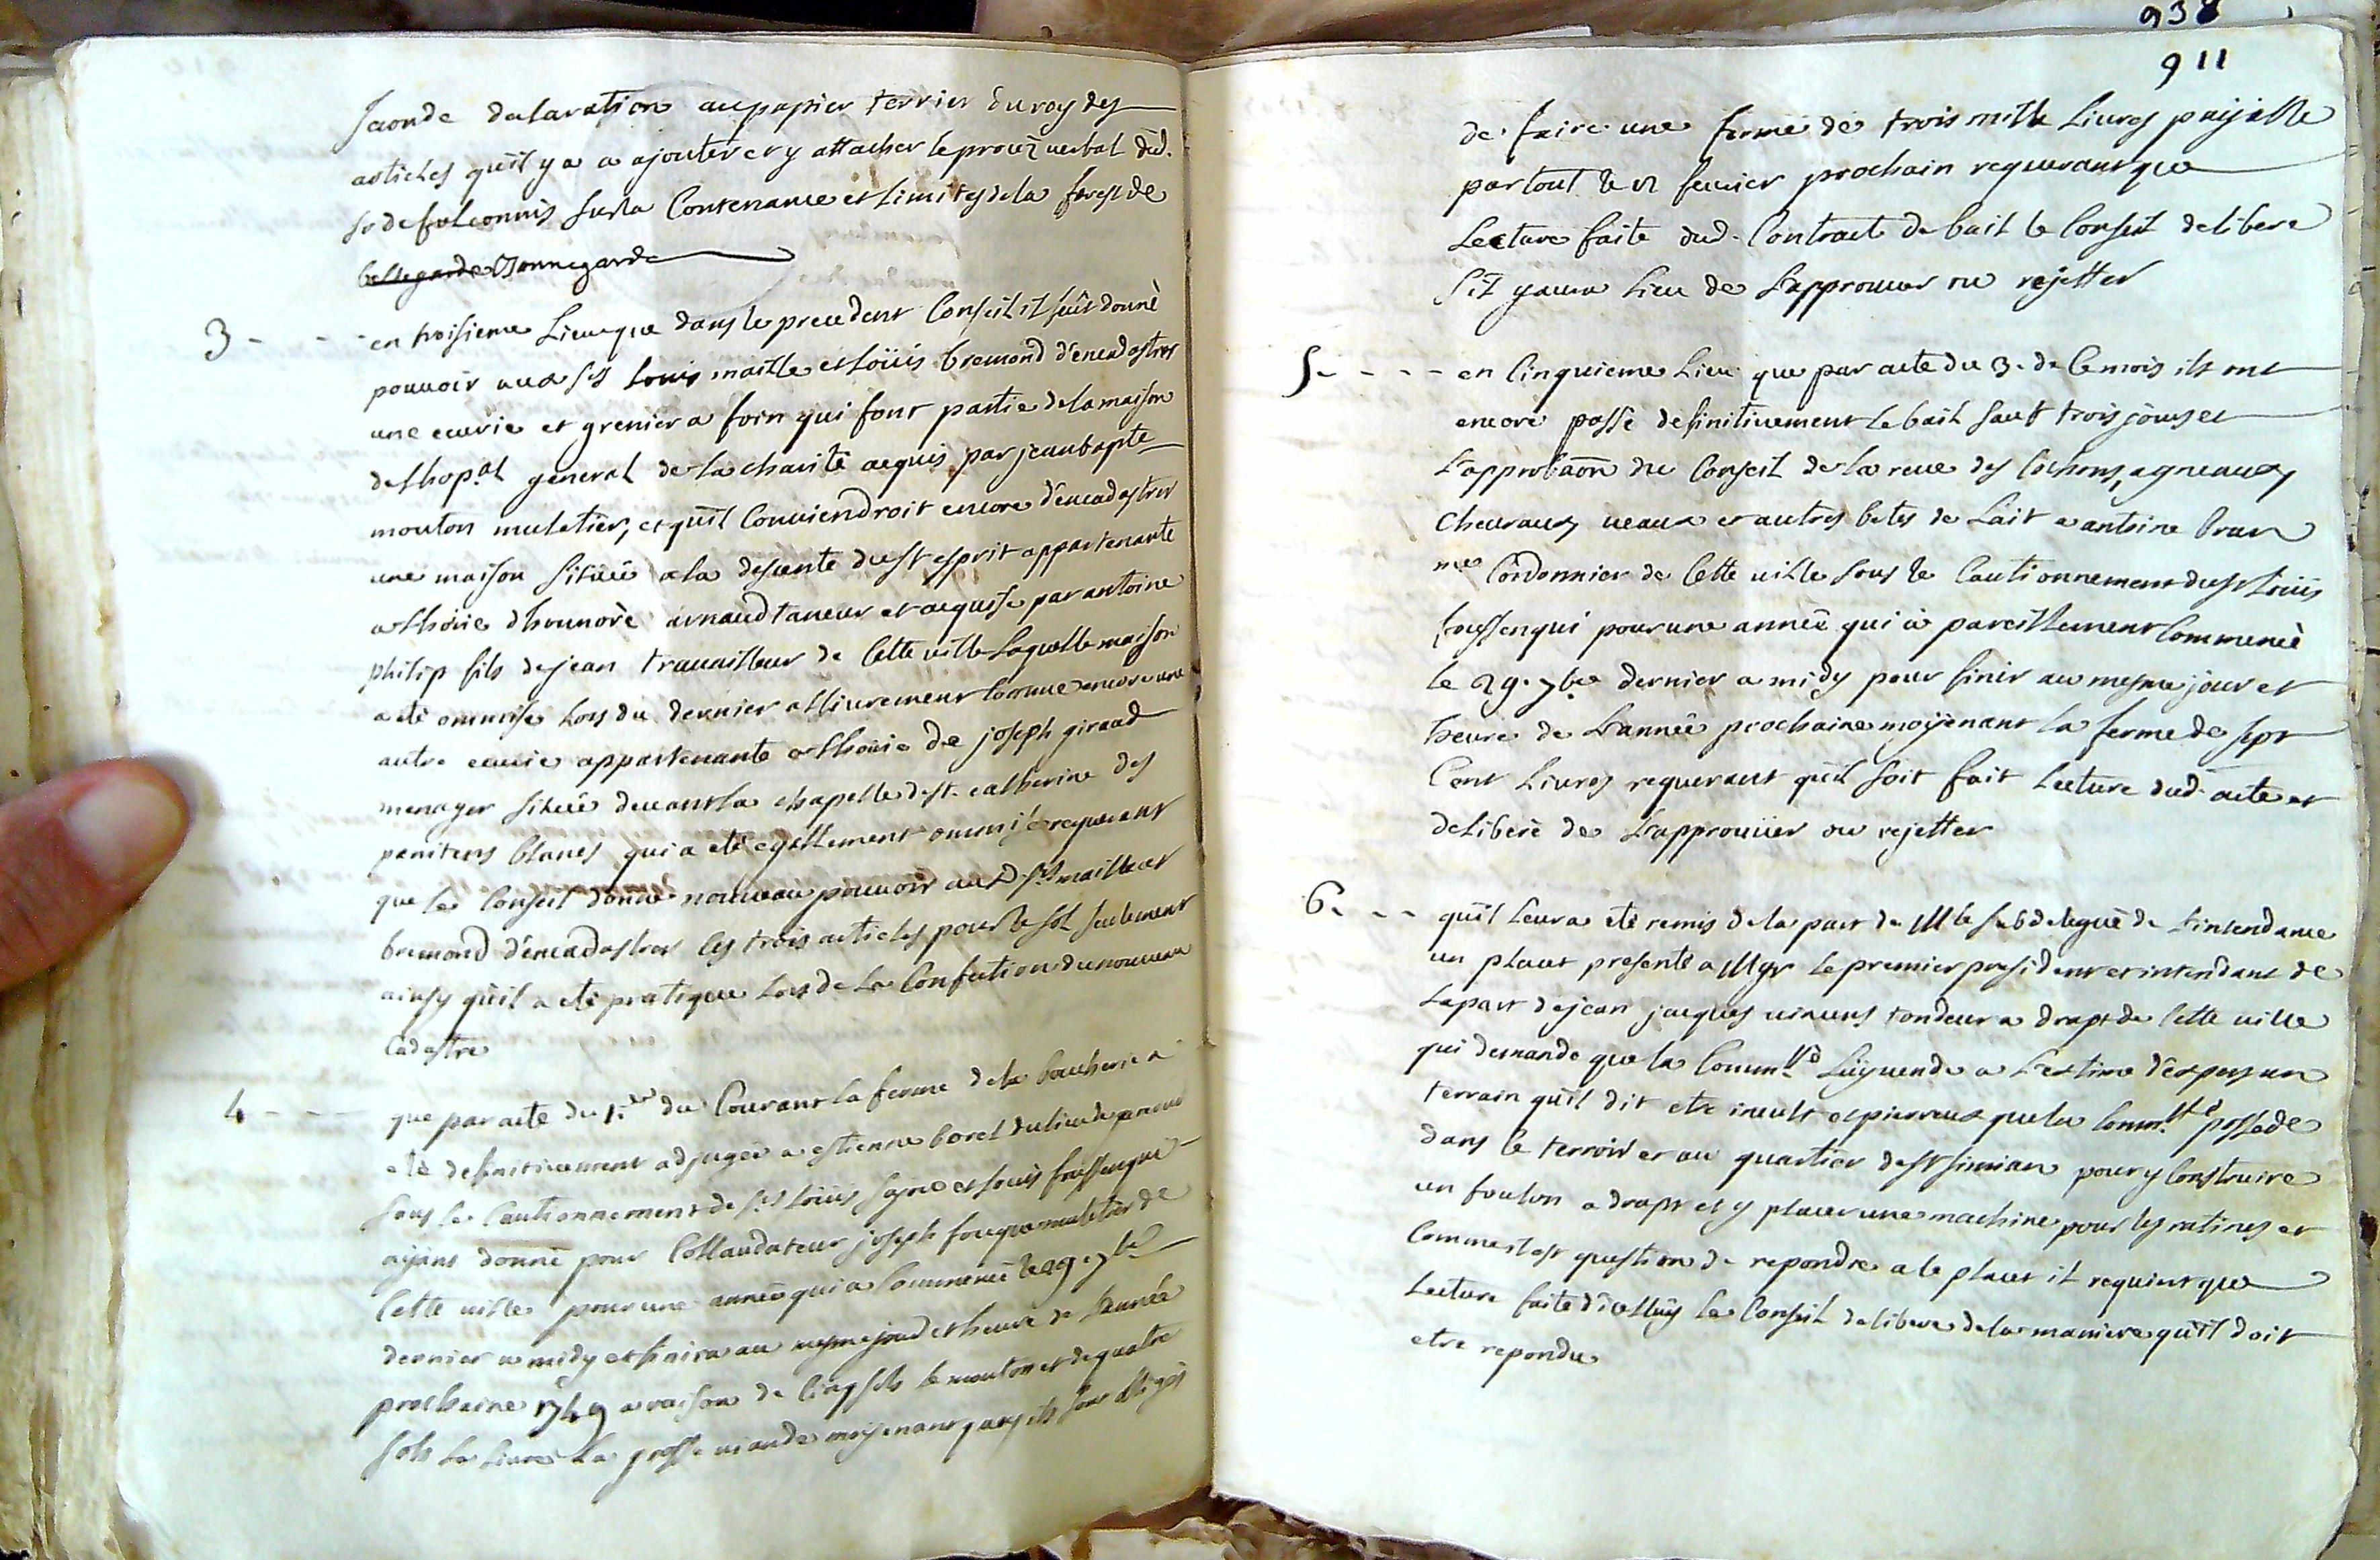 seconde declaration au papier terrier du roy des
articles qu'il y a a ajouter et y attacher le procez verbal dud.
sr de falconnis sur la Contenance et Limites de la forest de
bellegarde Bonnegarde
3 - - - en troisieme Lieu que dans le precedent Conseil il fût donné
pouvoir aux srs Louis maille et Loüis bremond d'encadastrer
une ecurie et grenier a foin qui font partie de la maison
de lhop.al general de la charité acquis par jean bapte
mouton muletier, et qu'il Conviendroit encore d'encadastrer
une maison Sitüée a la descente du st esprit appartenante
a Lhoirie dhonnoré arnaud taneur et acquise par antoine
philip fils de jean travailleur de Cette ville Laquelle maison
a eté ommise Lors du dernier allivrement Comme encore une
autre ecurie appartenante a Lhoirie de joseph giraud
menager Sitüée devant la chapelle de ste catherine des
penitens blancs qui a eté egallement ommise requerant
que Le Conseil donne nouveau pouvoir auxd. srs maille et
bremond d'encadastrer Les trois articles pour Le sol seulement
ainsy qu'il a eté pratiqué Lors de La Confection du nouveau
Cadastre
4 - - - que par acte du 1.er du Courant la ferme de la boucherie a
eté definitivement adjugée a estienne borel du lieu de
sous Le Cautionnement de srs Loüis et Louis frossenqui
aÿant donné pour Collaudateur joseph fouque muletier de
Cette ville pour une année qui a Commencé Le 29. 7bre
dernier a midy et finira au mesme jour et heure de L'année
prochaine 1749 a raison de Cinq sols le mouton et de quatre
sols La Livre La grosse viande moÿenant quoy ils sont obligés
938
911
de faire une ferme de trois mille Livres paÿable
par tout le fevrier prochain requerant que
Lecture faite dud. Contract de bail le Conseil delibere
S'il y aura Lieu de L'approuver ou rejetter
5. - - - en Cinquieme Lieu que par acte du 3. de Ce mois ils ont
encore passé definitivement Le bail sauf trois jours et
L'approbaôn du Conseil de la reve des Cochons, agneaux,
Chevraux, veaux et autres betes de Lait a antoine brun
me Cordonnier de Cette ville sous Le Cautionnement du sr Loüis
frossenqui pour une année qui a pareillement Commencé
le 29. 7bre dernier a midy pour finir au mesme jour et
heure de L'année prochaine moÿenant la ferme de sept
Cent Livres requerant qu'il soit fait Lecture dud. acte et
deliberé de L'approuüer ou rejetter
6. - - - qu'il Leur a eté remis de la part de M le subdelegué de L'intendance
un placet presenté a Mgr Le premier president et intendant de
La part de jean jacques tondeur a drapt de Cette ville
qui demande que la Comm.té Luy vende a L'estime d'expers un
terrain qu'il dit etre inculte et pierreux que la Comm.té possede
dans le terroir et au quartier de st simian pour y Construire
un foulon a drapt et y placer une machine pour les ratines et
Comme il est question de repondre a Ce placet il requiert que
Lecture faite d'iCelluy Le Conseil delibere de la maniere qu'il doit
etre repondu